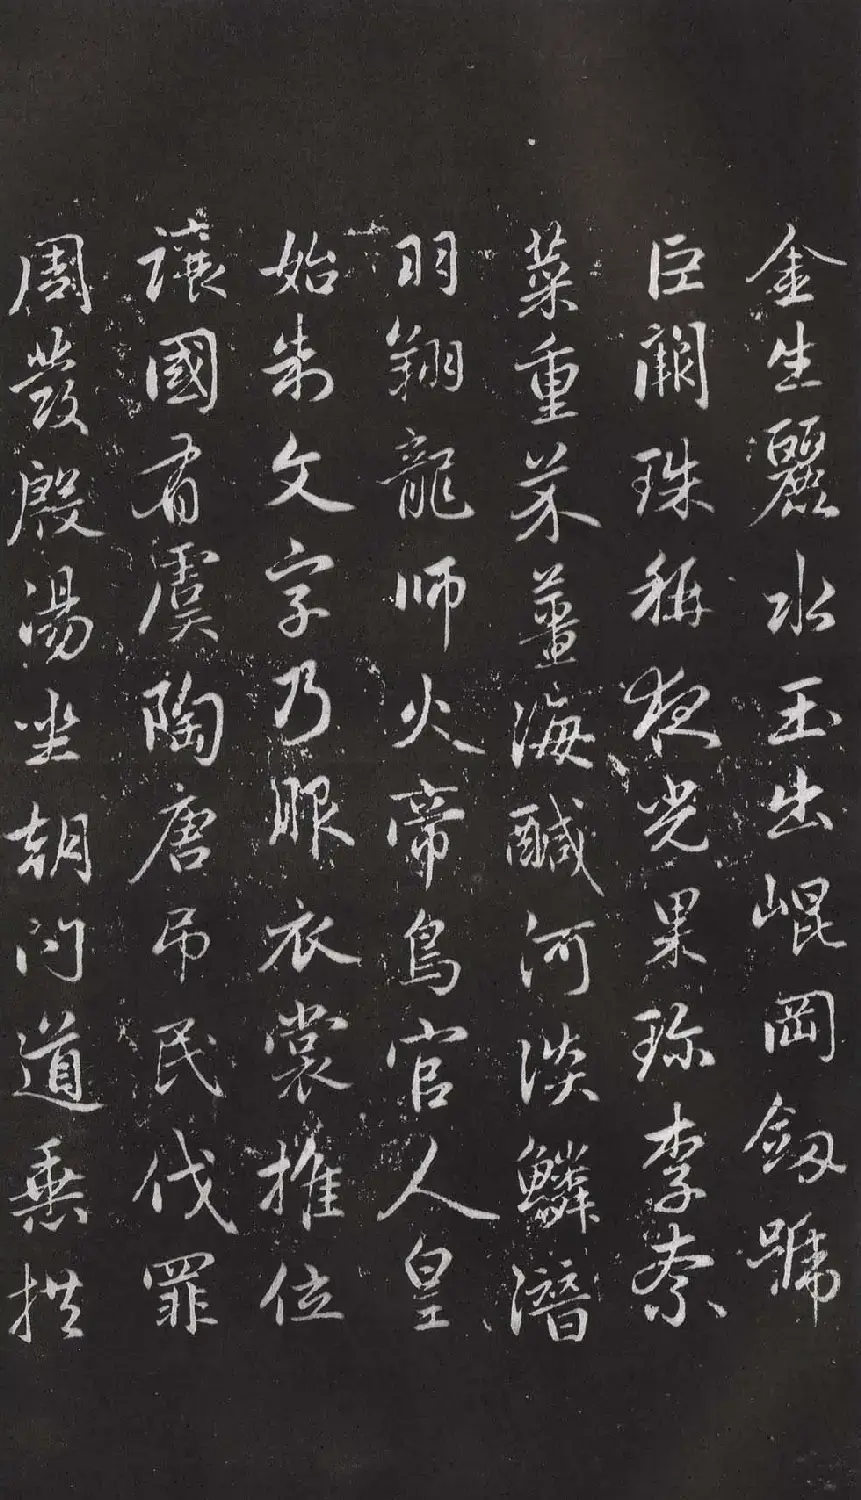 金生麗水玉出崐岡劒號
巨闕珠稱夜光果珎李柰
菜重芥薑海醎河淡鱗潛
羽翔龍師火帝鳥官人皇
始制文字乃服衣裳推位
讓國有虞陶唐吊民伐罪
周發殷湯坐朝問道垂拱